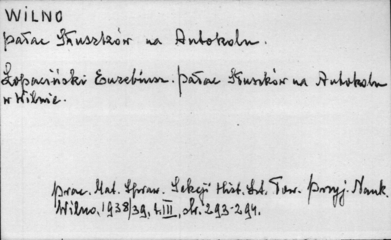 WILNO
pałac Słuszków na Antokolu.
Łopaciński Euzebiusz. pałac Słuszków na Antokolu
w Wilnie.
Prac. Mat. Spraw. Sekcji Hist. Szt. Tow. Przyj. Nauk.
Wilno, 1938/39, t. III, str. 293-294.